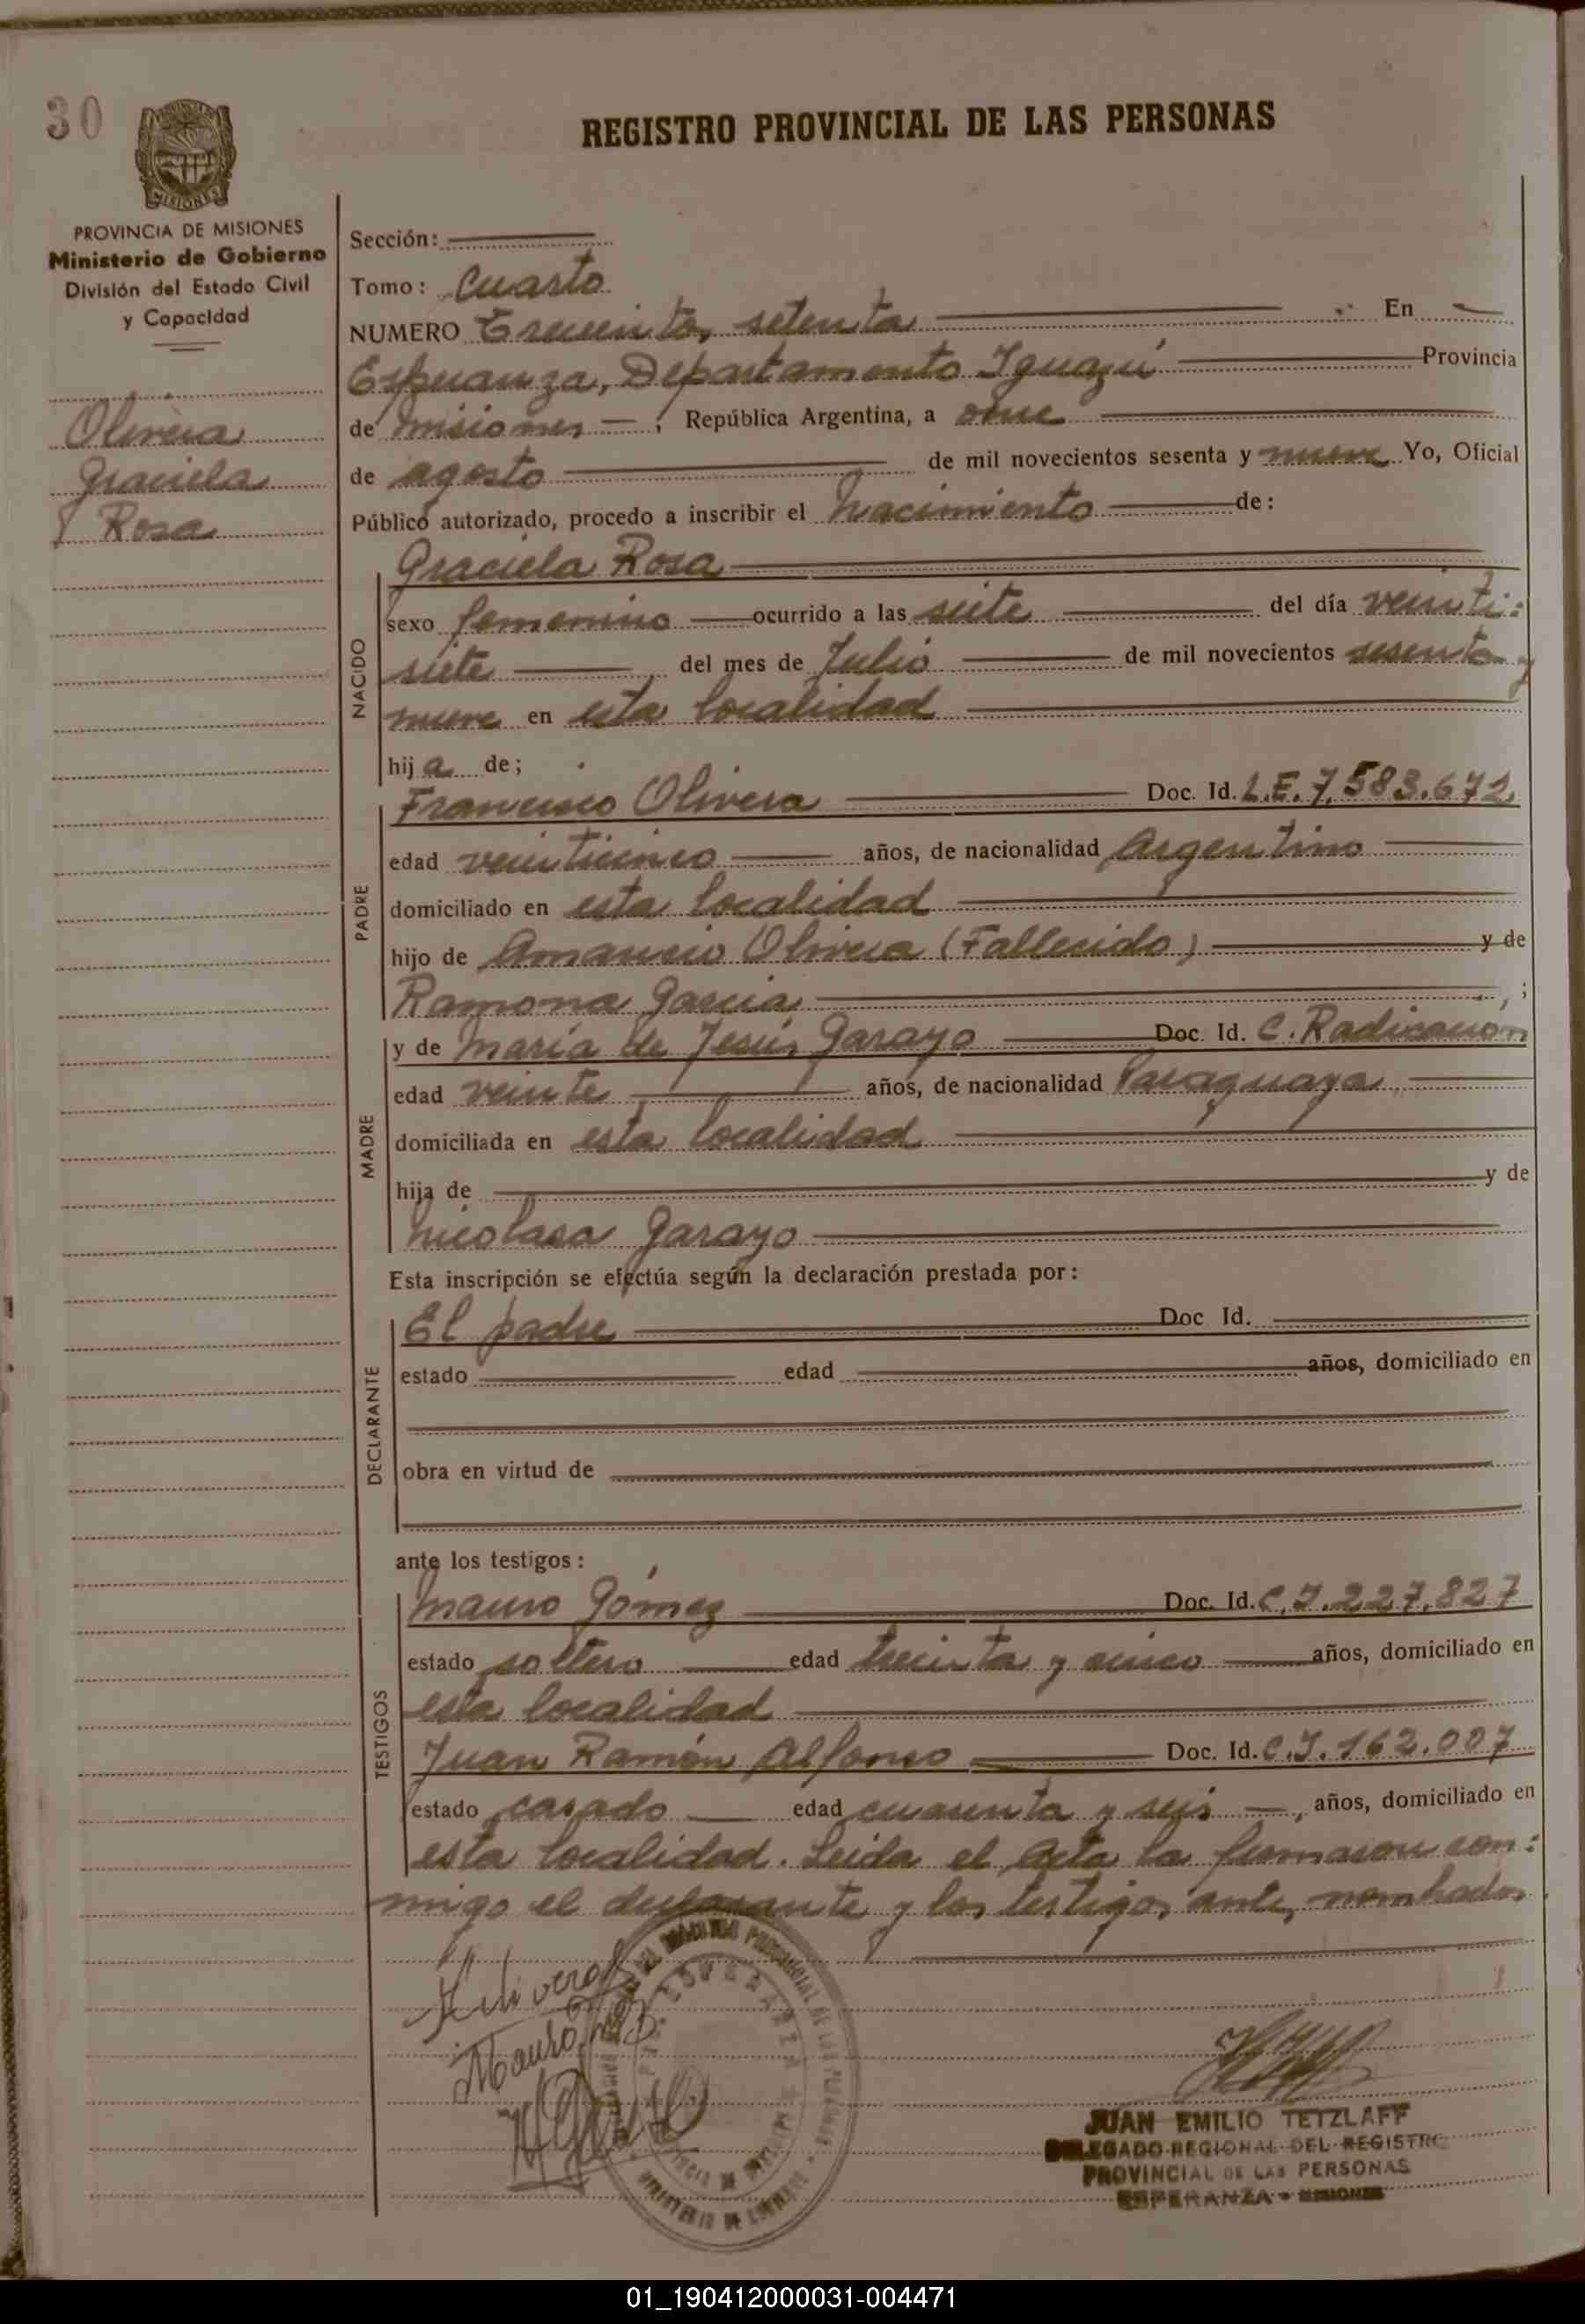 30
REGISTRO PROVINCIAL DE LAS PERSONAS
MISIONES
PROVINCIA DE MISIONES
Ministerio de Gobierno
División del Estado Civil
y Capacidad
Olivera
Graciela
Rosa
Sección:
Tomo: Cuarto
NUMERO Trecientos setenta En
Esperanza, Departamento Iguazú Provincia
de Misiones, República Argentina, a once
de agosto de mil novecientos sesenta y nueve Yo, Oficial
Público autorizado, procedo a inscribir el Nacimiento de:
NACIDO
Graciela Rosa
sexo femenino ocurrido a las siete del día veinti-
siete del mes de Julio de mil novecientos sesenta y
nueve en esta localidad
hija de;
PADRE
Francisco Olivera Doc. Id. L.E. 7.583.672
edad veinticinco años, de nacionalidad Argentino
domiciliado en esta localidad
hijo de Amancio Olivera (Fallecido) y de
Ramona Garcia ;
MADRE
y de María de Jesús Garayo Doc. Id. C. Radicación
edad veinte años, de nacionalidad Paraguaya
domiciliada en esta localidad
hija de y de
Nicolasa Garayo
Esta inscripción se efectúa según la declaración prestada por:
DECLARANTE
El padre Doc Id.
estado edad años, domiciliado en
obra en virtud de
ante los testigos:
TESTIGOS
Mauro Gómez Doc. Id. C.I. 227.827
estado soltero edad treinta y cinco años, domiciliado en
esta localidad
Juan Ramón Alfonso Doc. Id. C.I. 162.007
estado casado edad cuarenta y seis, años, domiciliado en
esta localidad. Leida el Acta la firmaron con-
migo el declarante y los testigos antes nombrados
Mauro
JUAN EMILIO TETZLAFF
DELEGADO REGIONAL DEL REGISTRO
PROVINCIAL DE LAS PERSONAS
ESPERANZA - MISIONES
01_190412000031-004471